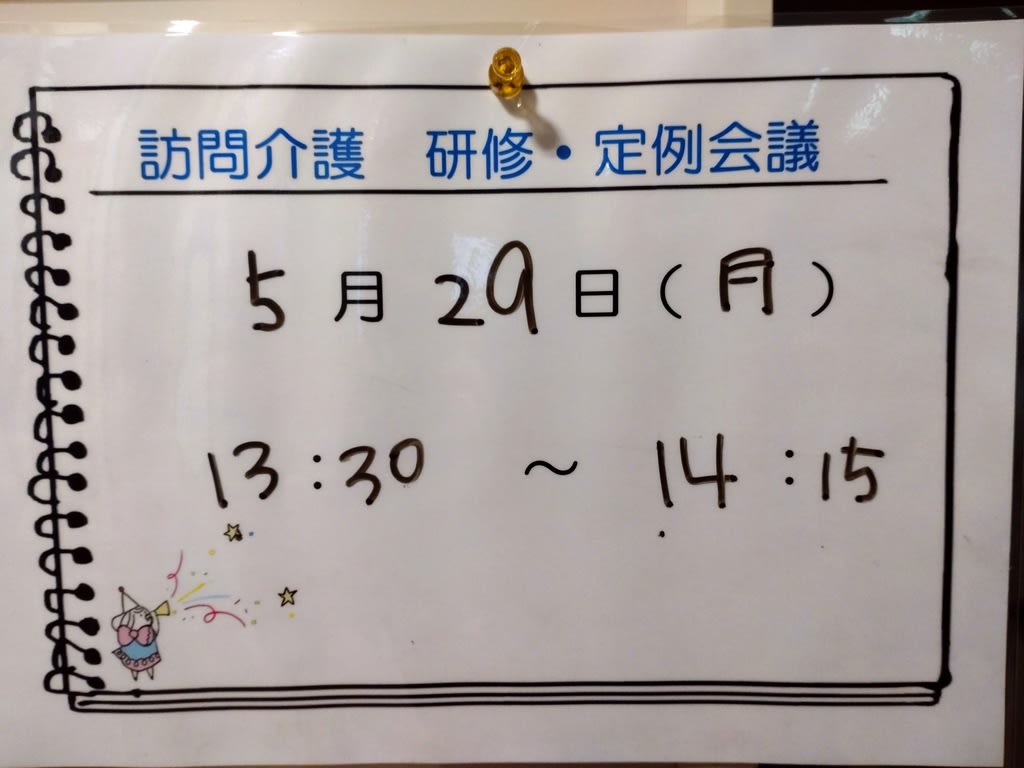 訪問介護　研修・定例会議
5月29日(月)
13:30 ～ 14:15